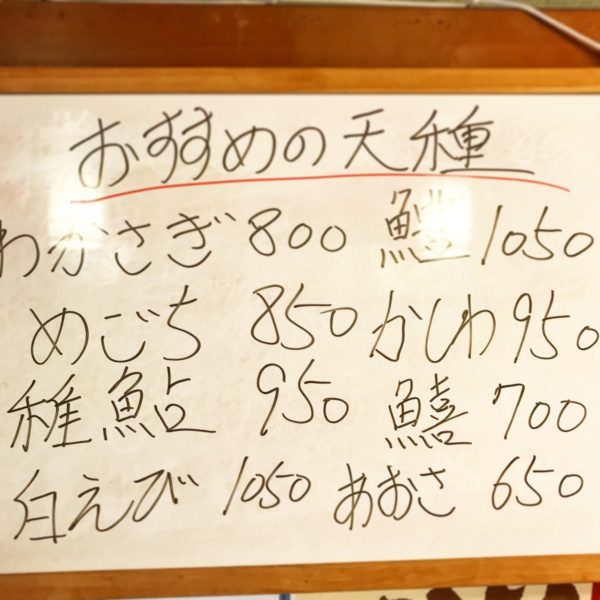 おすすめの天種
わかさぎ 800 鱧 1050
めごち 850 かしわ 950
稚鮎 950 鱚 700
白えび 1050 あおさ 650